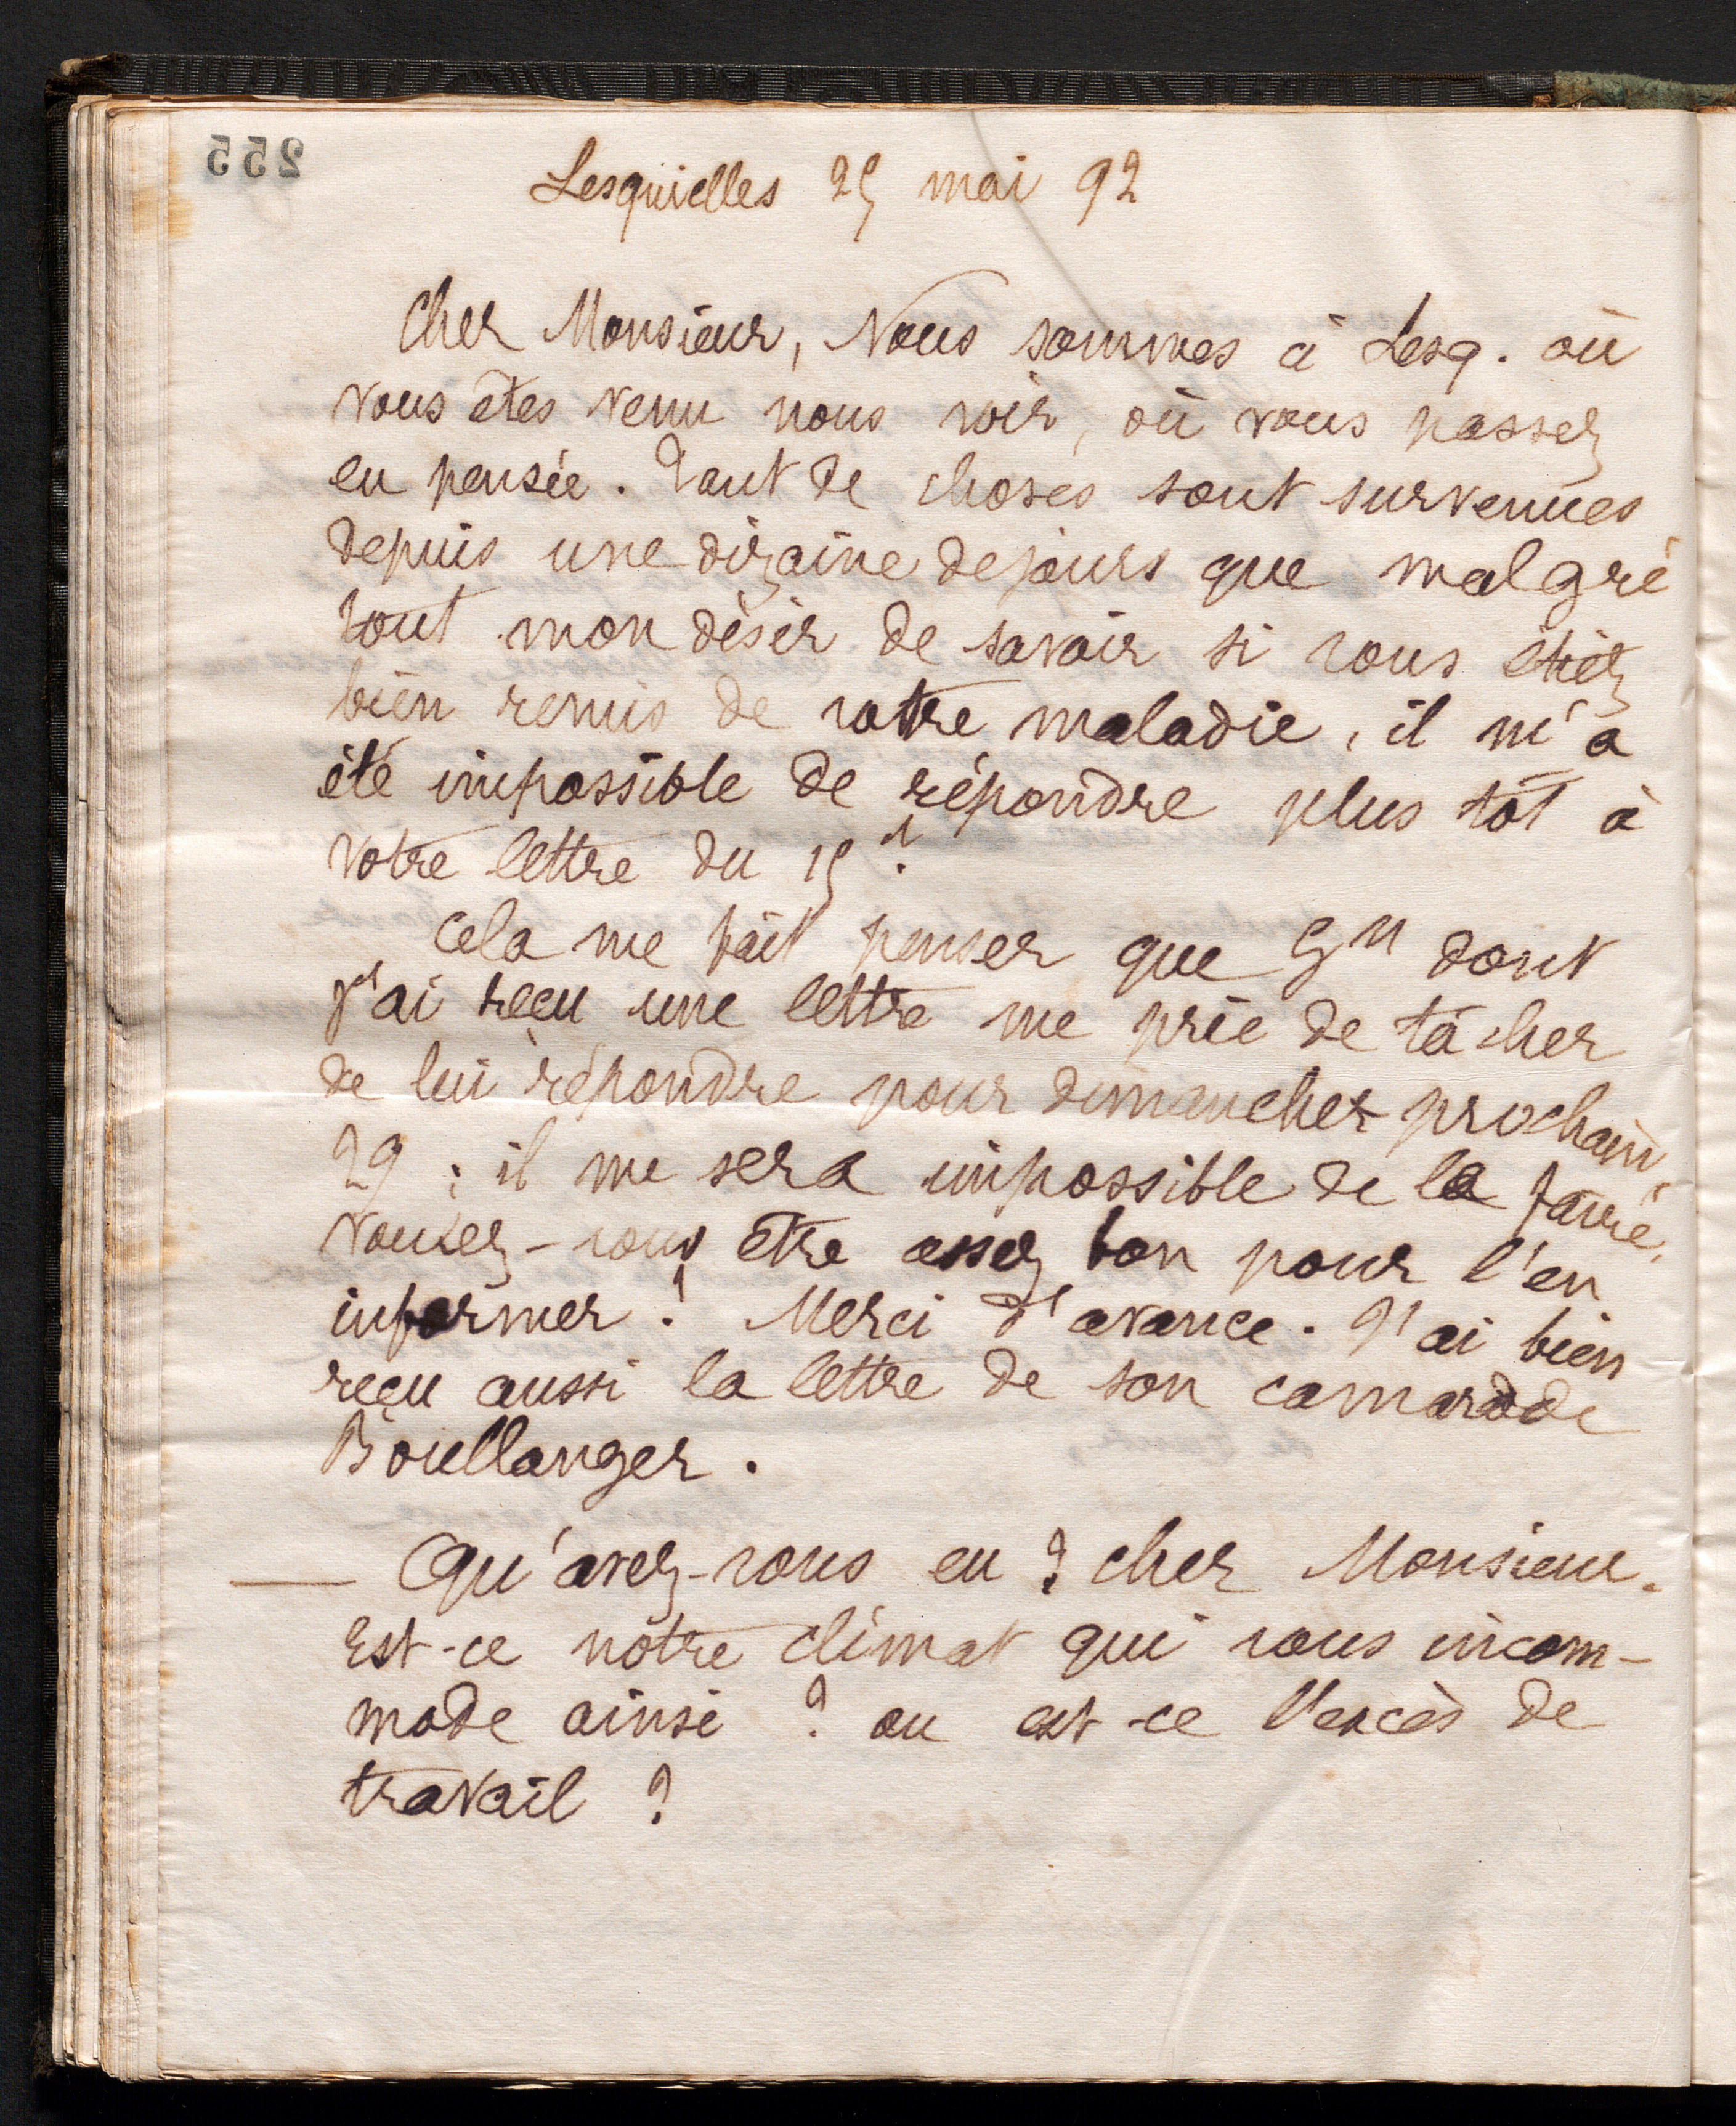 255
Lesquielles 25 mai 92
Cher Monsieur, Nous sommes à Lesq. où
vous êtes venu nous voir, où vous passez
en pensée. Tant de choses sont survenues
depuis une dizaine de jours que malgré
tout mon désir de savoir si vous étiez
bien remis de votre maladie, il m'a
été impossible de répondre plus tôt à
votre lettre du 15
Cela me fait penser que Gⁿ dont
j'ai reçu une lettre me prie de tâcher
de lui répondre pour dimanche prochain
29 ; il me sera impossible de le faire.
Voulez-vous être assez bon pour l'en
informer ? Merci d'avance. J'ai bien
reçu aussi la lettre de son camarade
Boullanger.
— Qu'avez-vous eu ? cher Monsieur.
Est-ce notre climat qui vous incom-
mode ainsi ? ou est-ce l'excès de
travail ?